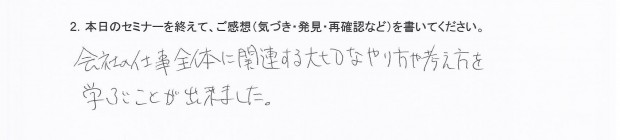 2. 本日のセミナーを終えて、ご感想(気づき・発見・再確認など)を書いてください。
会社の仕事全体に関連する大切なやり方や考え方を
学ぶことが出来ました。